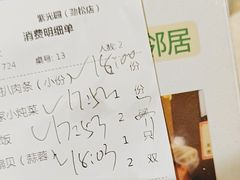 紫光园 (劲松店)
消费明细单
724 桌号: 13 人数: 2
邻居
扒肉条 (小份) 18:00 份
小炖菜 17:52 1 份
饭 17:53 2
扇贝 (蒜蓉 18:03 2 双